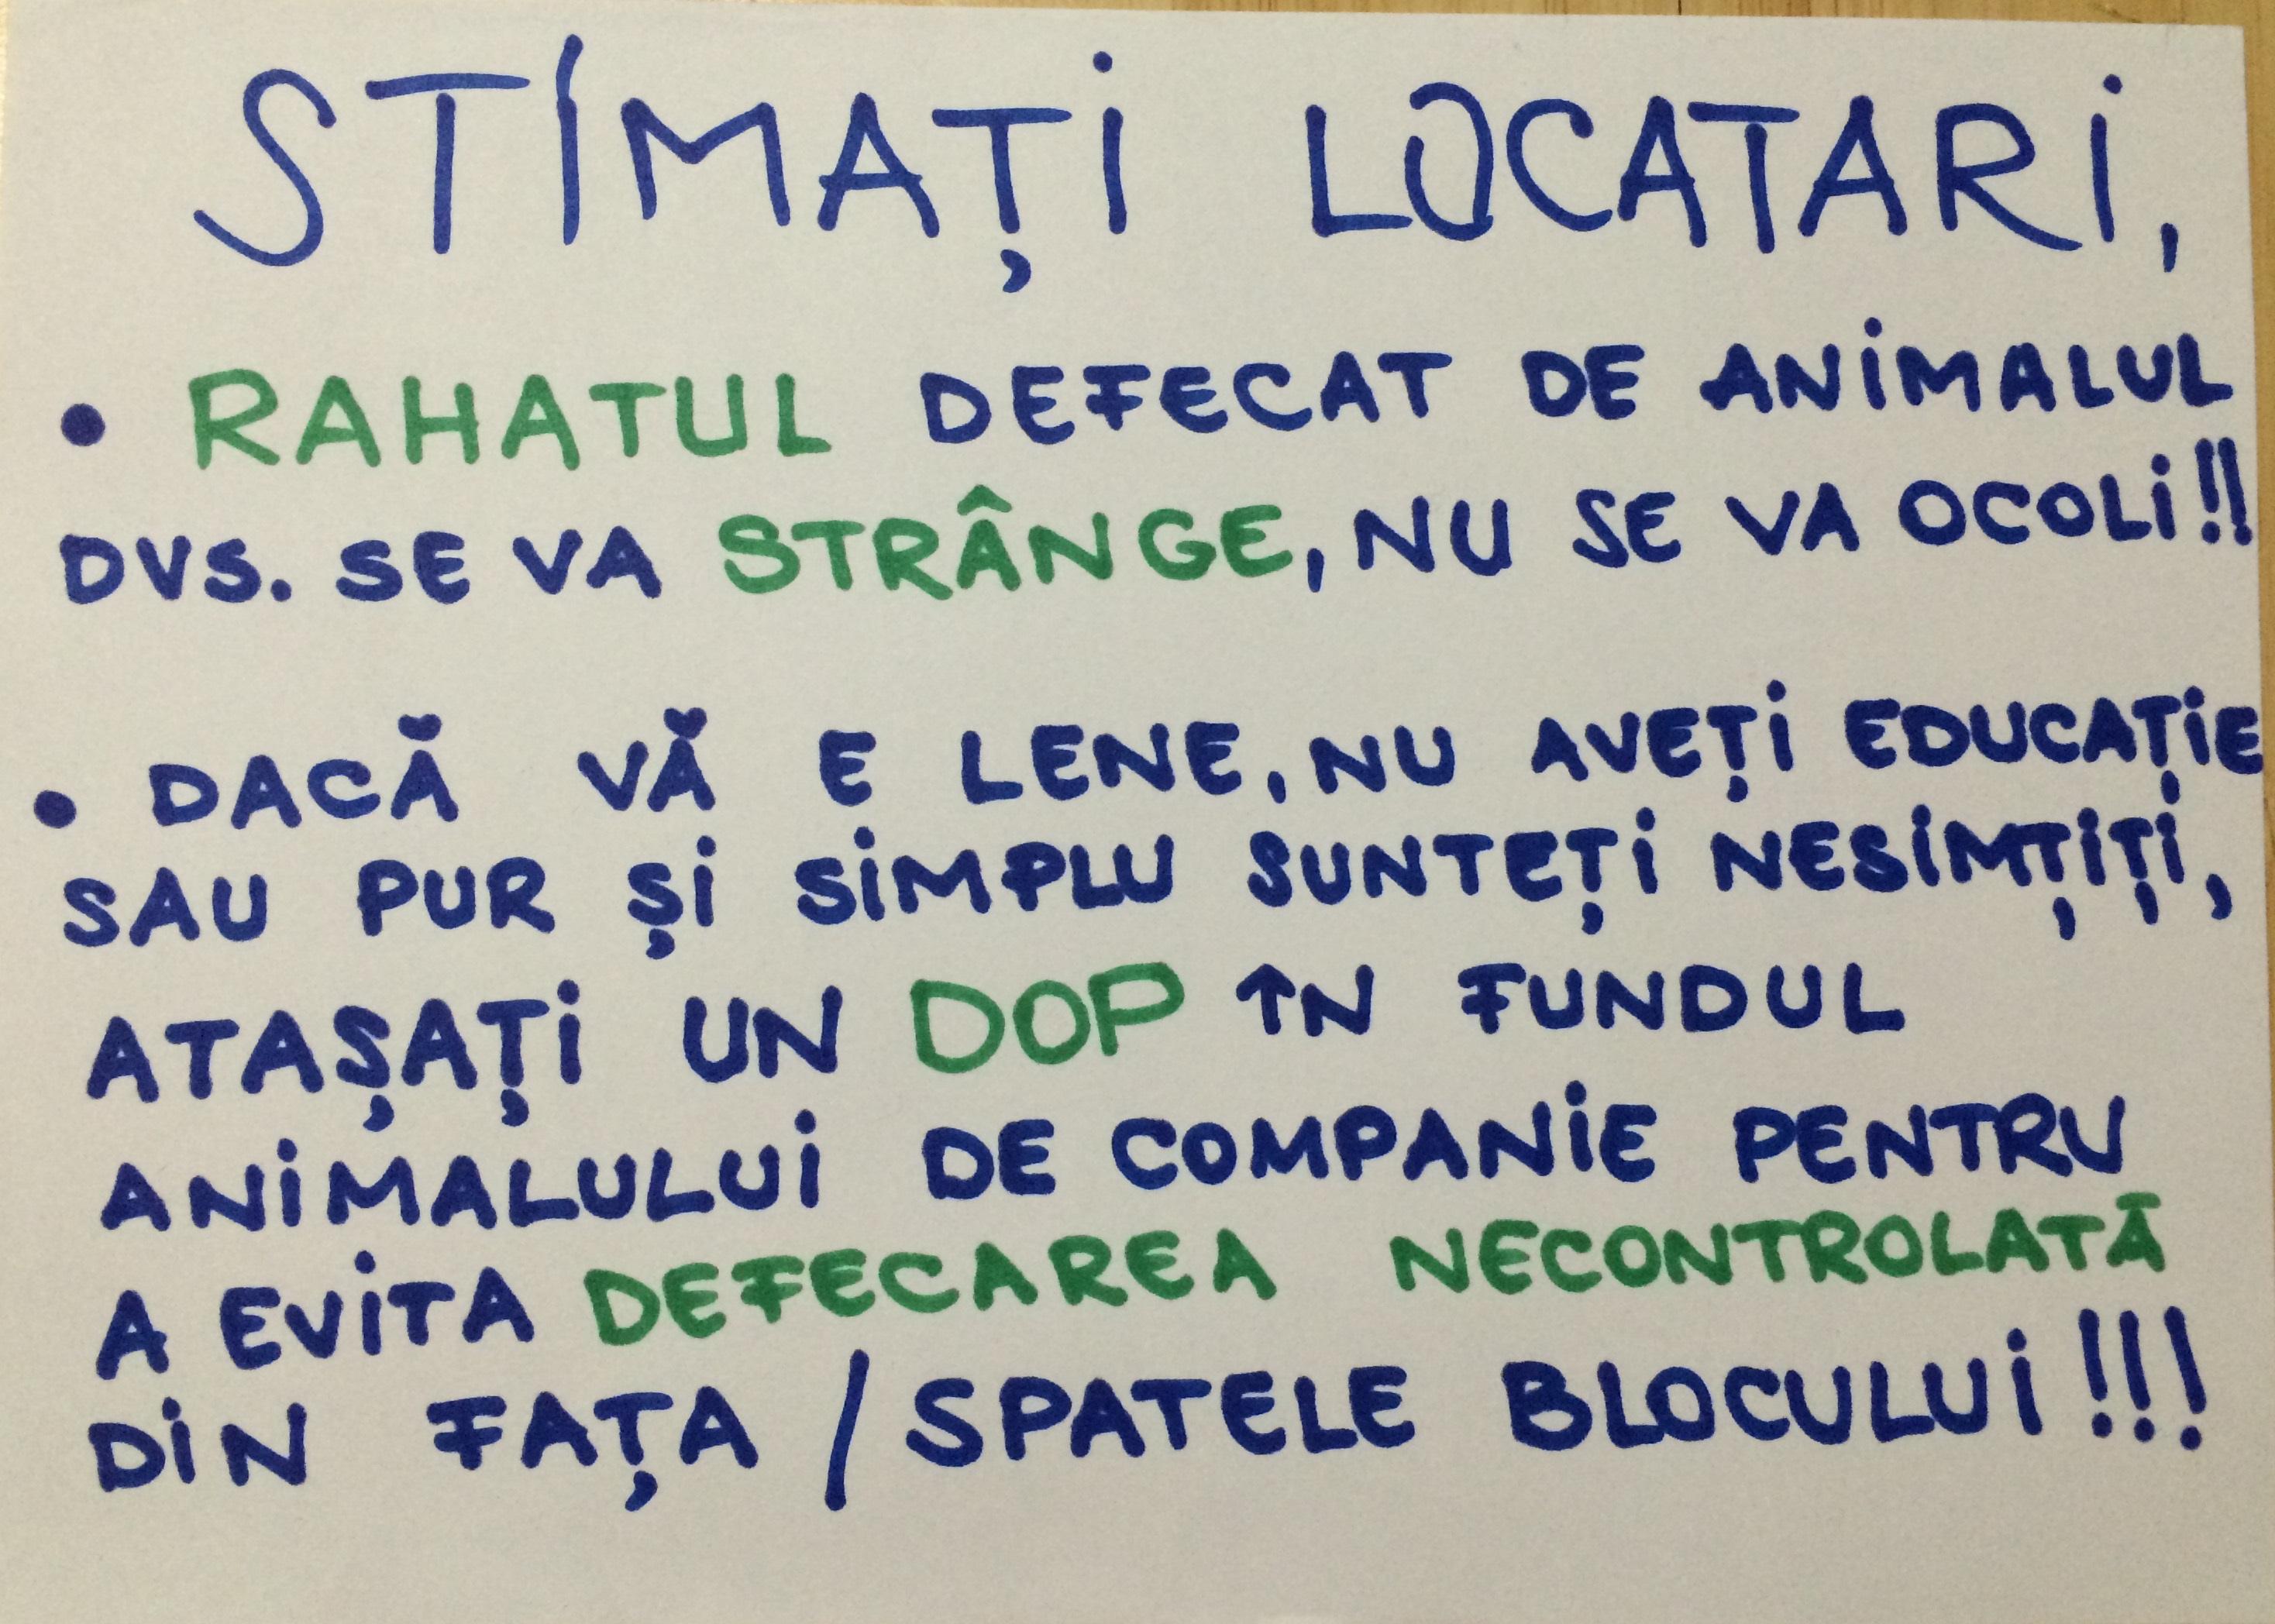 STIMAȚI LOCATARI,
• RAHATUL DEFECAT DE ANIMALUL
DVS. SE VA STRÂNGE, NU SE VA OCOLI!!
• DACĂ VĂ E LENE, NU AVEȚI EDUCAȚIE
SAU PUR ȘI SIMPLU SUNTEȚI NESIMȚIȚI,
ATAȘAȚI UN DOP ÎN FUNDUL
ANIMALULUI DE COMPANIE PENTRU
A EVITA DEFECAREA NECONTROLATĂ
DIN FAȚA / SPATELE BLOCULUI!!!